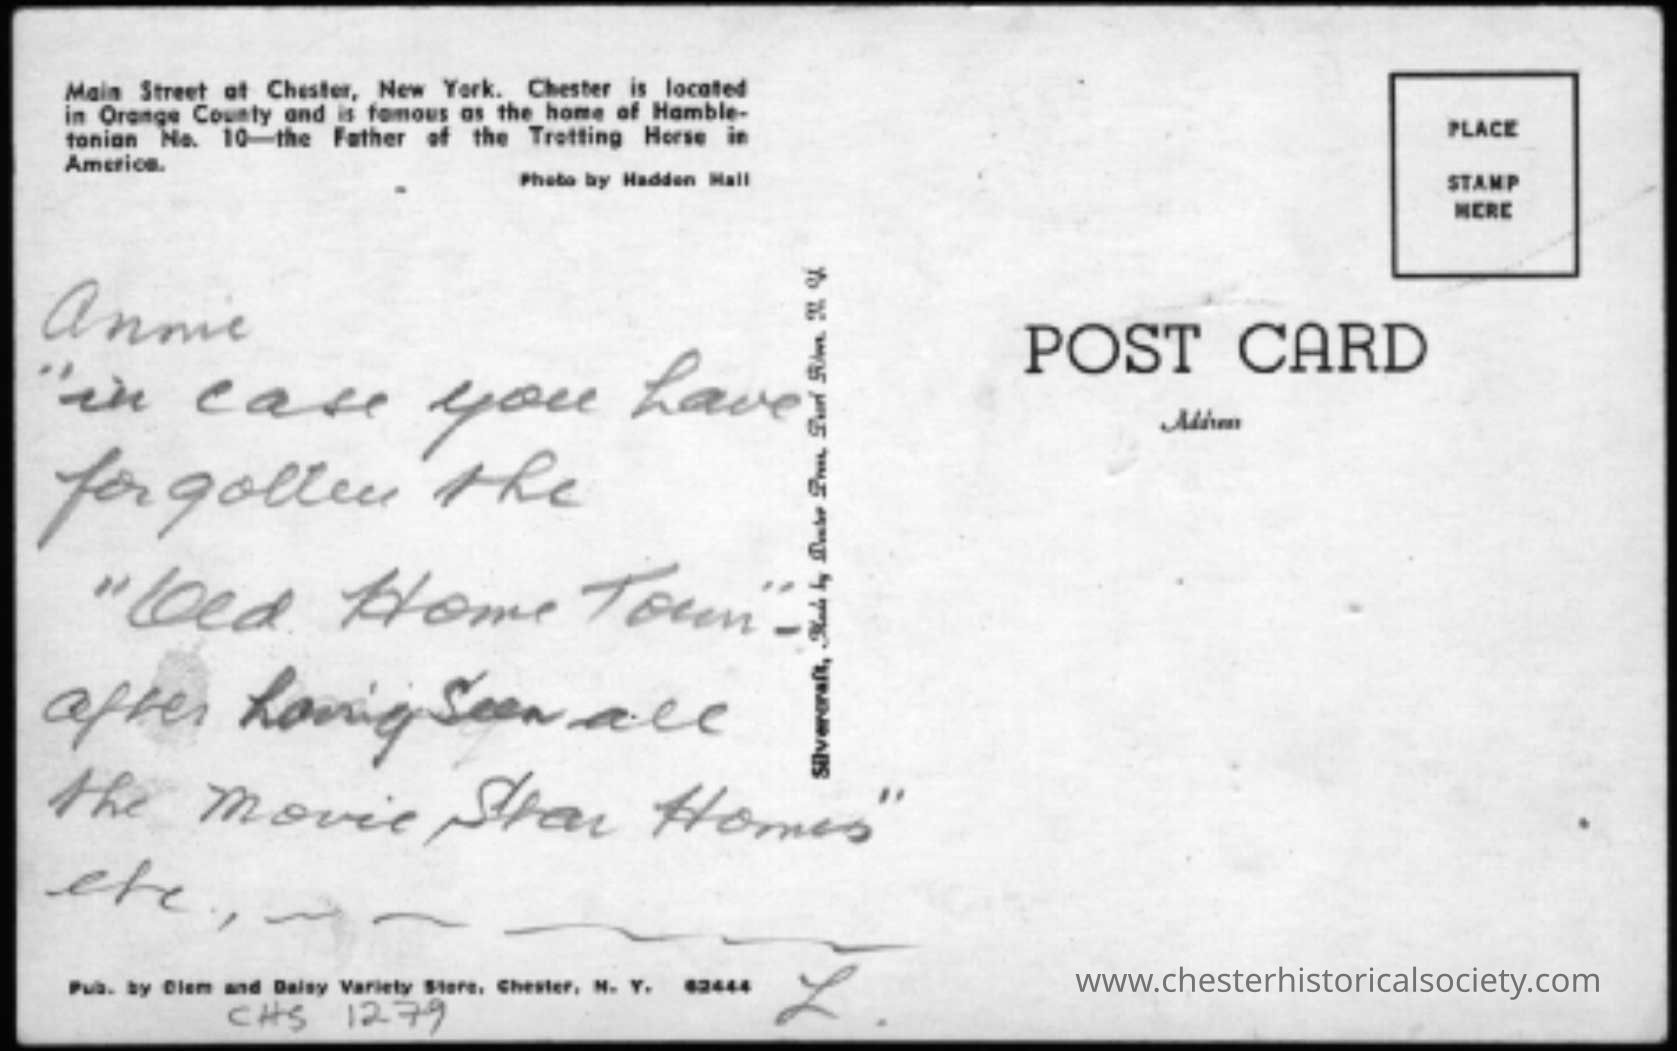 Main Street at Chester, New York. Chester is located
in Orange County and is famous as the home of Hamble-
tonian No. 10—the Father of the Trotting Horse in
America.
Photo by Hadden Hall
Annie
"in case you have
forgotten the
"Old Home Town"-
after having Seen all
the Movie Star Homes"
etc.,
L.
Pub. by Clem and Daisy Variety Store, Chester, N. Y. 62444
CHS 1279
Silvercraft, Made by Dexter Press, Pearl River, N. Y.
PLACE
STAMP
HERE
POST CARD
Address
www.chesterhistoricalsociety.com